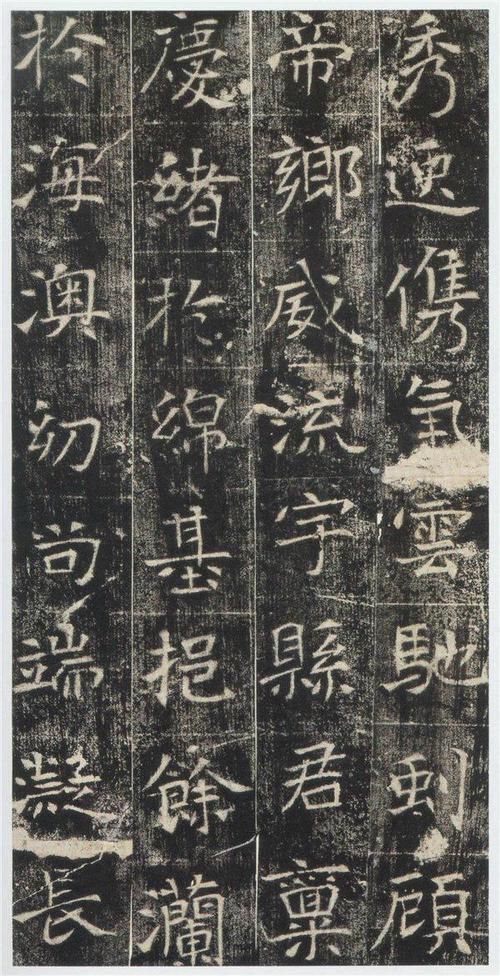 秀儁氣雲馳顧
帝鄉威流宇縣君稟
慶緒於綿基挹餘瀾
於海澳幼尚端凝長